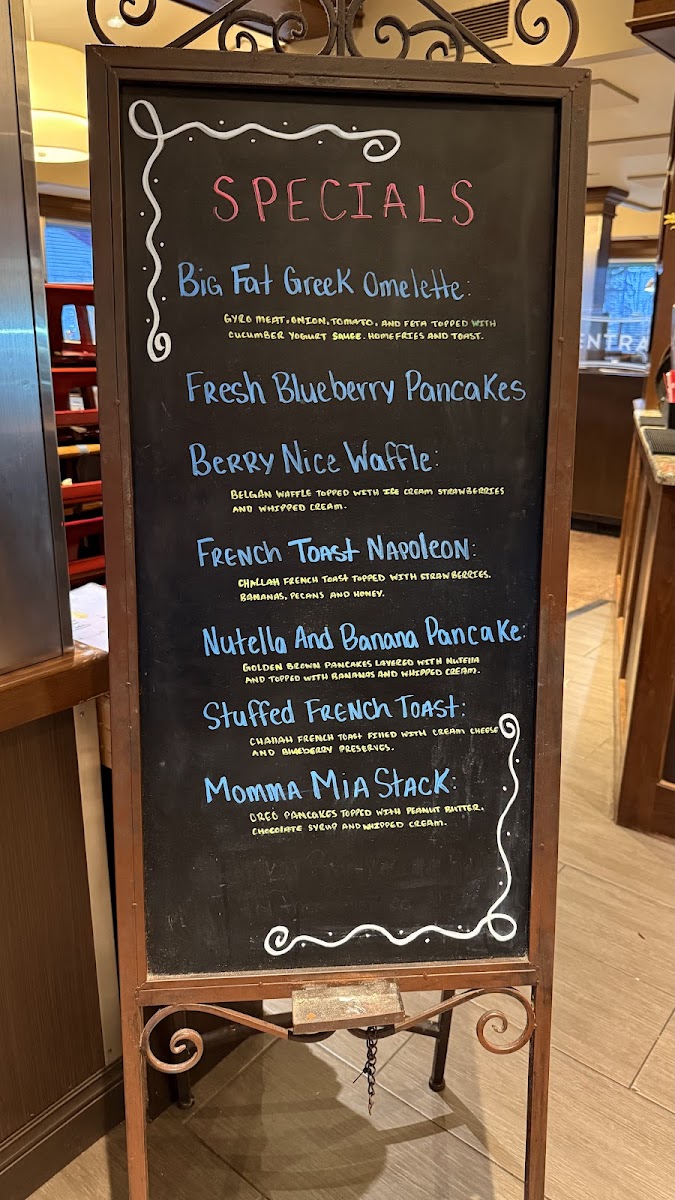 SPECIALS
Big Fat Greek Omelette:
GYRO MEAT, ONION, TOMATO, AND FETA TOPPED WITH
CUCUMBER YOGURT SAUCE. HOMEFRIES AND TOAST.
FResh Blueberry Pancakes
BERRY Nice Waffle:
BELGAN WAFFLE TOPPED WITH ICE CREAM STRAWBERRIES
AND WHIPPED CREAM.
FRENCH TOAST NAPOLEON:
CHALLAH FRENCH TOAST TOPPED WITH STRAWBERRIES,
BANANAS, PECANS AND HONEY.
Nutella And Banana Pancake:
GOLDEN BROWN PANCAKES LAYERED WITH NUTELLA
AND TOPPED WITH BANANAS AND WHIPPED CREAM.
Stuffed FRENCH TOAST:
CHALLAH FRENCH TOAST FILLED WITH CREAM CHEESE
AND BLUEBERRY PRESERVES.
MOMMA MIA STACK:
OREO PANCAKES TOPPED WITH PEANUT BUTTER,
CHOCOLATE SYRUP AND WHIPPED CREAM.
ENTRA